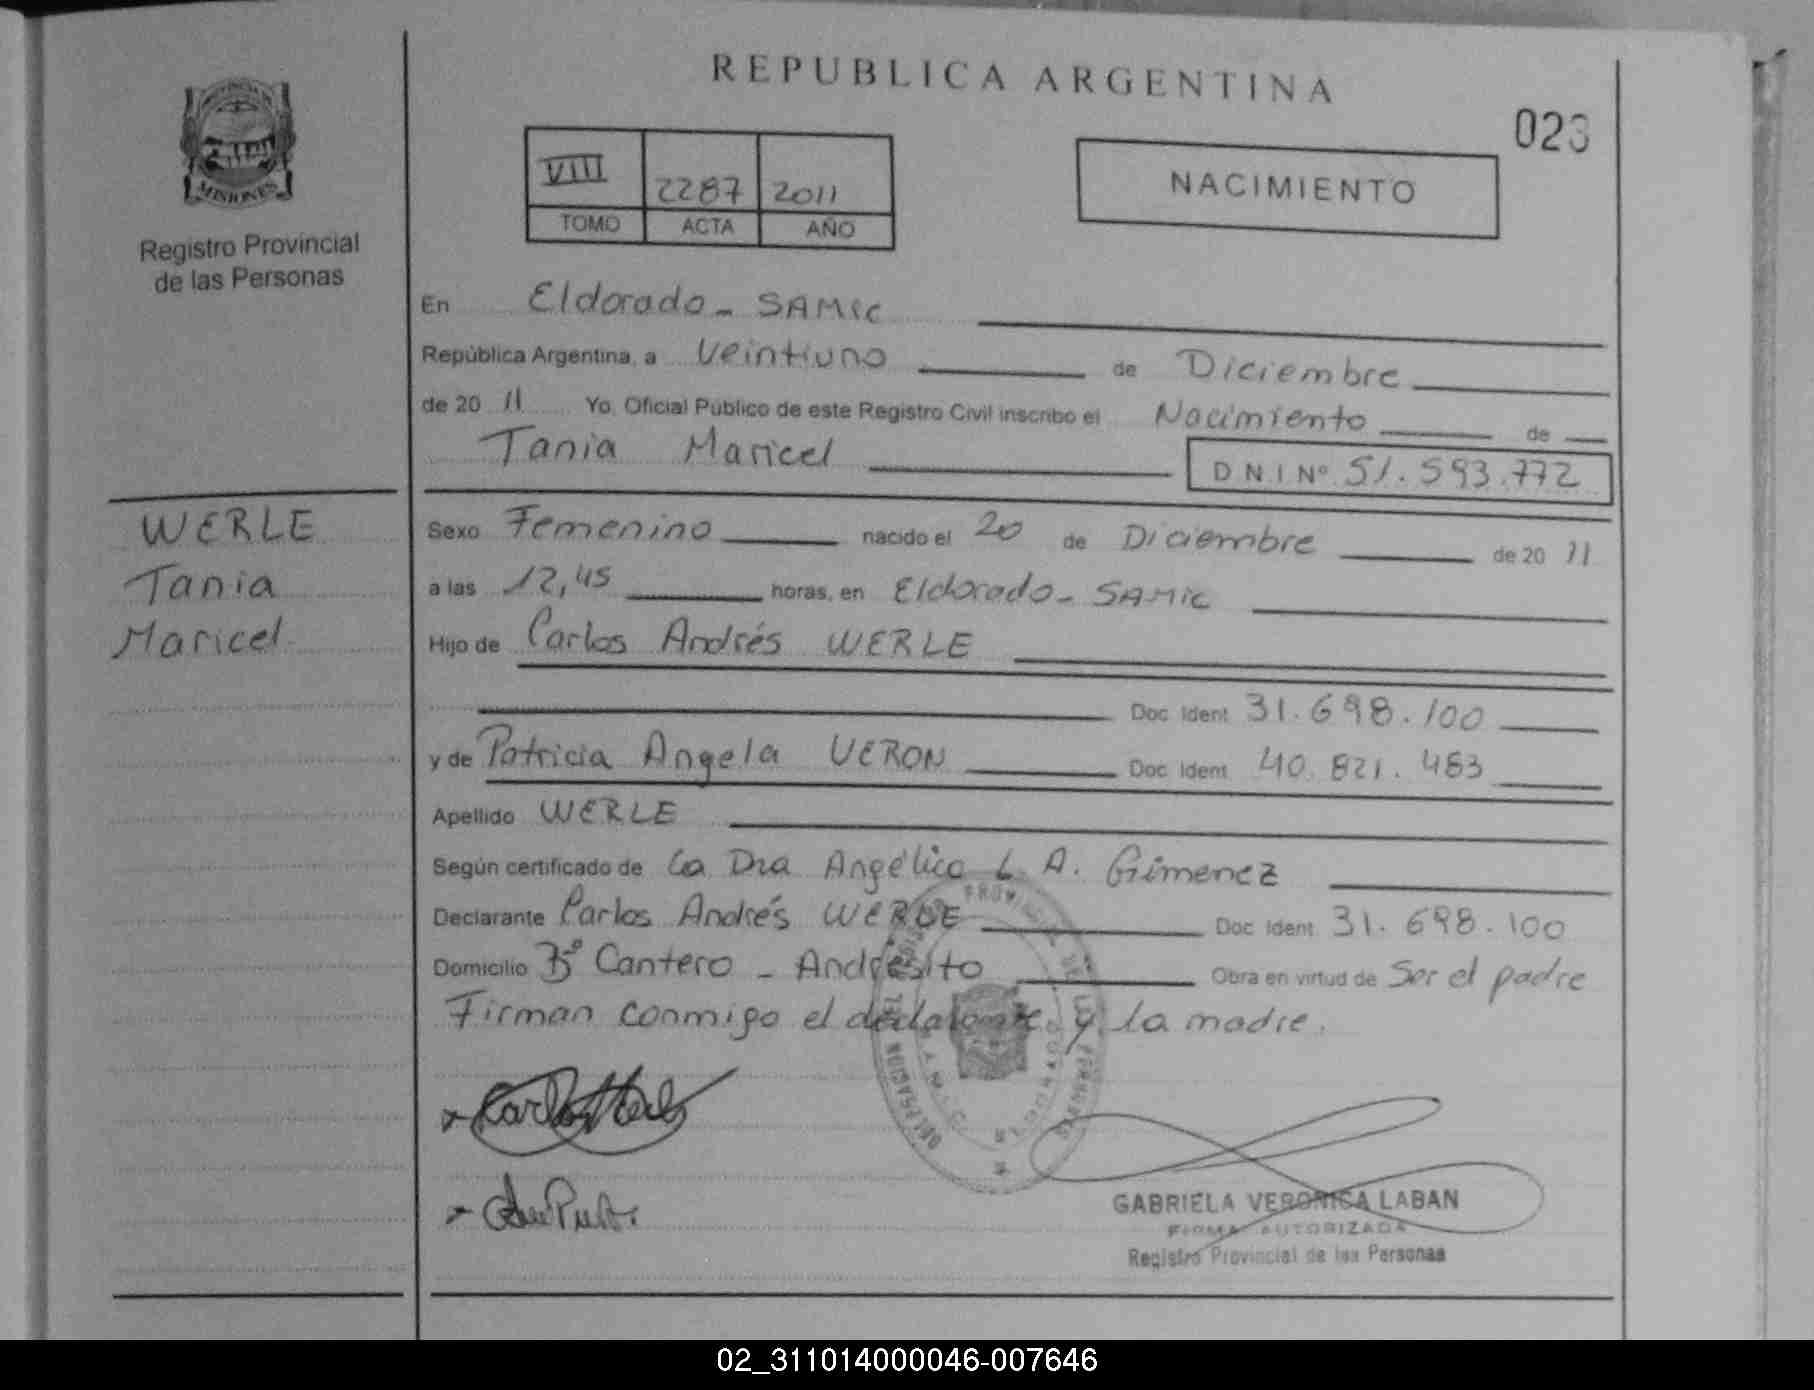 REPUBLICA ARGENTINA
023
PROVINCIA DE
MISIONES
Registro Provincial
de las Personas
VIII 2287 2011
TOMO ACTA AÑO
NACIMIENTO
En Eldorado - SAMIC
República Argentina, a Veintiuno de Diciembre
de 20 11 Yo, Oficial Público de este Registro Civil inscribo el Nacimiento de
Tania Maricel D.N.I Nº 51.593.772
WERLE
Tania
Maricel
Sexo Femenino nacido el 20 de Diciembre de 20 11
a las 12,45 horas, en Eldorado - SAMIC
Hijo de Carlos Andrés WERLE
Doc. Ident. 31.698.100
y de Patricia Angela VERON Doc. Ident. 40.821.483
Apellido WERLE
Según certificado de la Dra Angélica L. A. Gimenez
Declarante Carlos Andrés WERLE Doc. Ident. 31.698.100
Domicilio Bº Cantero - Andresito Obra en virtud de Ser el padre
Firman conmigo el declarante y la madre.
GABRIELA VERONICA LABAN
FIRMA AUTORIZADA
Registro Provincial de las Personas
02_311014000046-007646